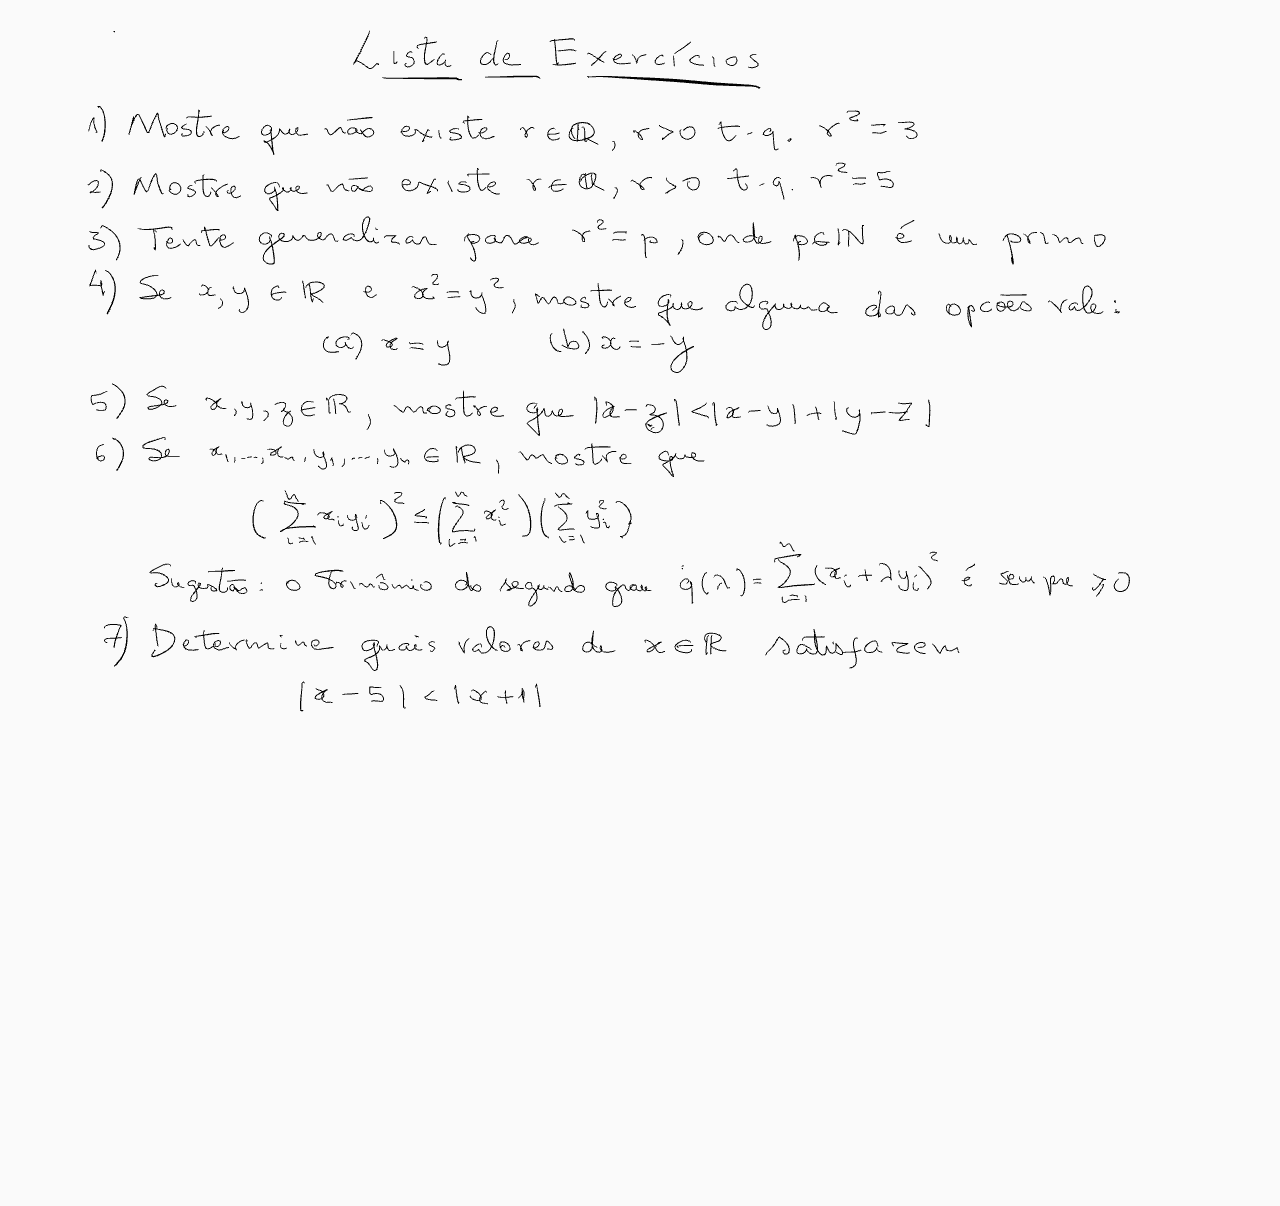 Lista de Exercícios
1) Mostre que não existe r ∈ ℚ, r > 0 t.q. r² = 3
2) Mostre que não existe r ∈ ℚ, r > 0 t.q. r² = 5
3) Tente generalizar para r² = p, onde p ∈ ℕ é um primo
4) Se x, y ∈ ℝ e x² = y², mostre que alguma das opcões vale:
(a) x = y (b) x = -y
5) Se x, y, z ∈ ℝ, mostre que |x - z| < |x - y| + |y - z|
6) Se x₁, ..., xₙ, y₁, ..., yₙ ∈ ℝ, mostre que
(∑ᵢ₌₁ⁿ xᵢyᵢ)² ≤ (∑ᵢ₌₁ⁿ xᵢ²)(∑ᵢ₌₁ⁿ yᵢ²)
Sugestão: o trinômio do segundo grau q(λ) = ∑ᵢ₌₁ⁿ (xᵢ + λyᵢ)² é sempre ≥ 0
7) Determine quais valores de x ∈ ℝ satisfazem
|x - 5| < |x + 1|